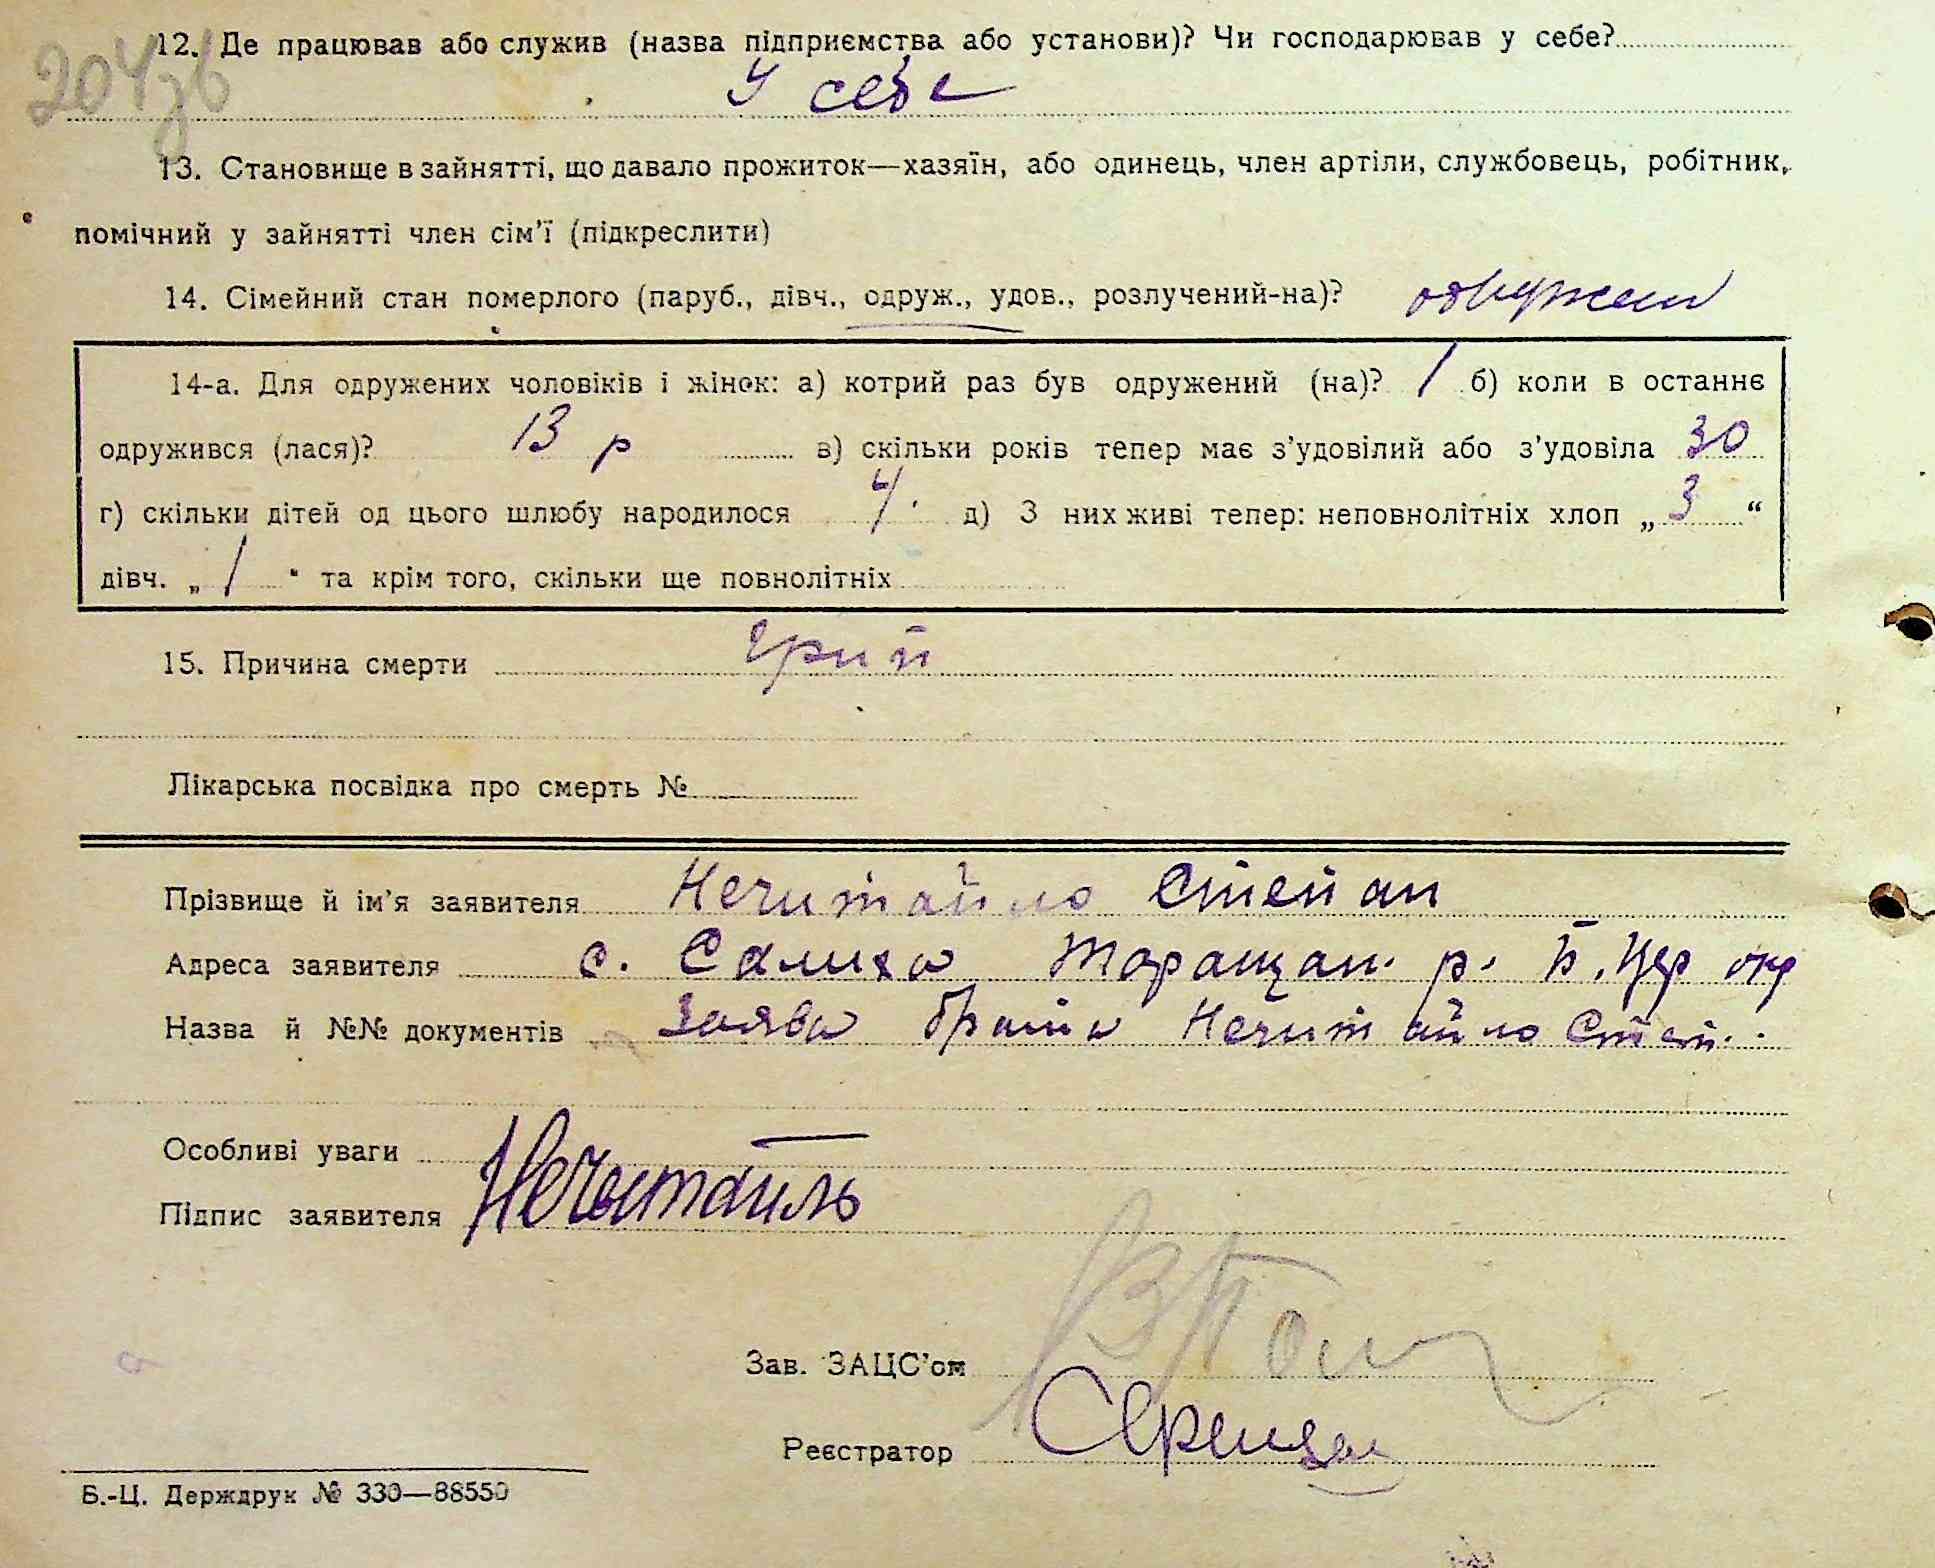 204зв
12. Де працював або служив (назва підприємства або установи)? Чи господарював у себе?
У себе
13. Становище в зайнятті, що давало прожиток—хазяїн, або одинець, член артіли, службовець, робітник,
помічний у зайнятті член сім'ї (підкреслити)
14. Сімейний стан померлого (паруб., дівч., одруж., удов., розлучений-на)? одружен
14-а. Для одружених чоловіків і жінок: а) котрий раз був одружений (на)? 1 б) коли в останнє
одружився (лася)? 13 р в) скільки років тепер має з'удовілий або з'удовіла 30
г) скільки дітей од цього шлюбу народилося 4 д) З них живі тепер: неповнолітніх хлоп „ 3 “
дівч. „ 1 “ та крім того, скільки ще повнолітніх
15. Причина смерти Грип
Лікарська посвідка про смерть №
Прізвище й ім'я заявителя Нечитайло Степан
Адреса заявителя с. Салиха Таращан. р. Б. Цер окр
Назва й №№ документів Заява брата Нечитайло Степ.
Особливі уваги
Підпис заявителя Нечитайль
Зав. ЗАЦС'ом
Реєстратор
Б.-Ц. Держдрук № 330—88550